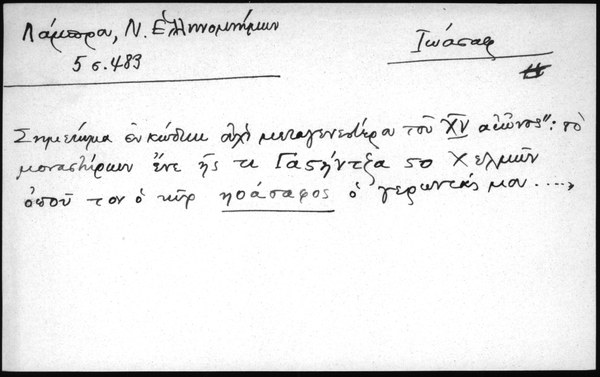 Λάμπρου, Ν. Ἑλληνομνήμων
5 σ. 483
Ἰωάσαφ
Σημείωμα ἐν κώδικι οὐχὶ μεταγενεστέρᾳ τοῦ XV αἰῶνος": τὸ
μοναστίριων ἔνε ἢς τι Γαστήντζα στο Χελμῶν
ὁποῦ τον ὁ κῦρ ηοάσαφος ὁ γερωντάς μου ....